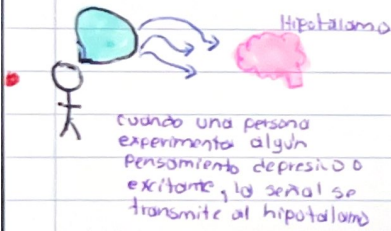 Hipotálamo
cuando una persona
experimenta algún
pensamiento depresivo o
excitante, la señal se
transmite al hipotálamo